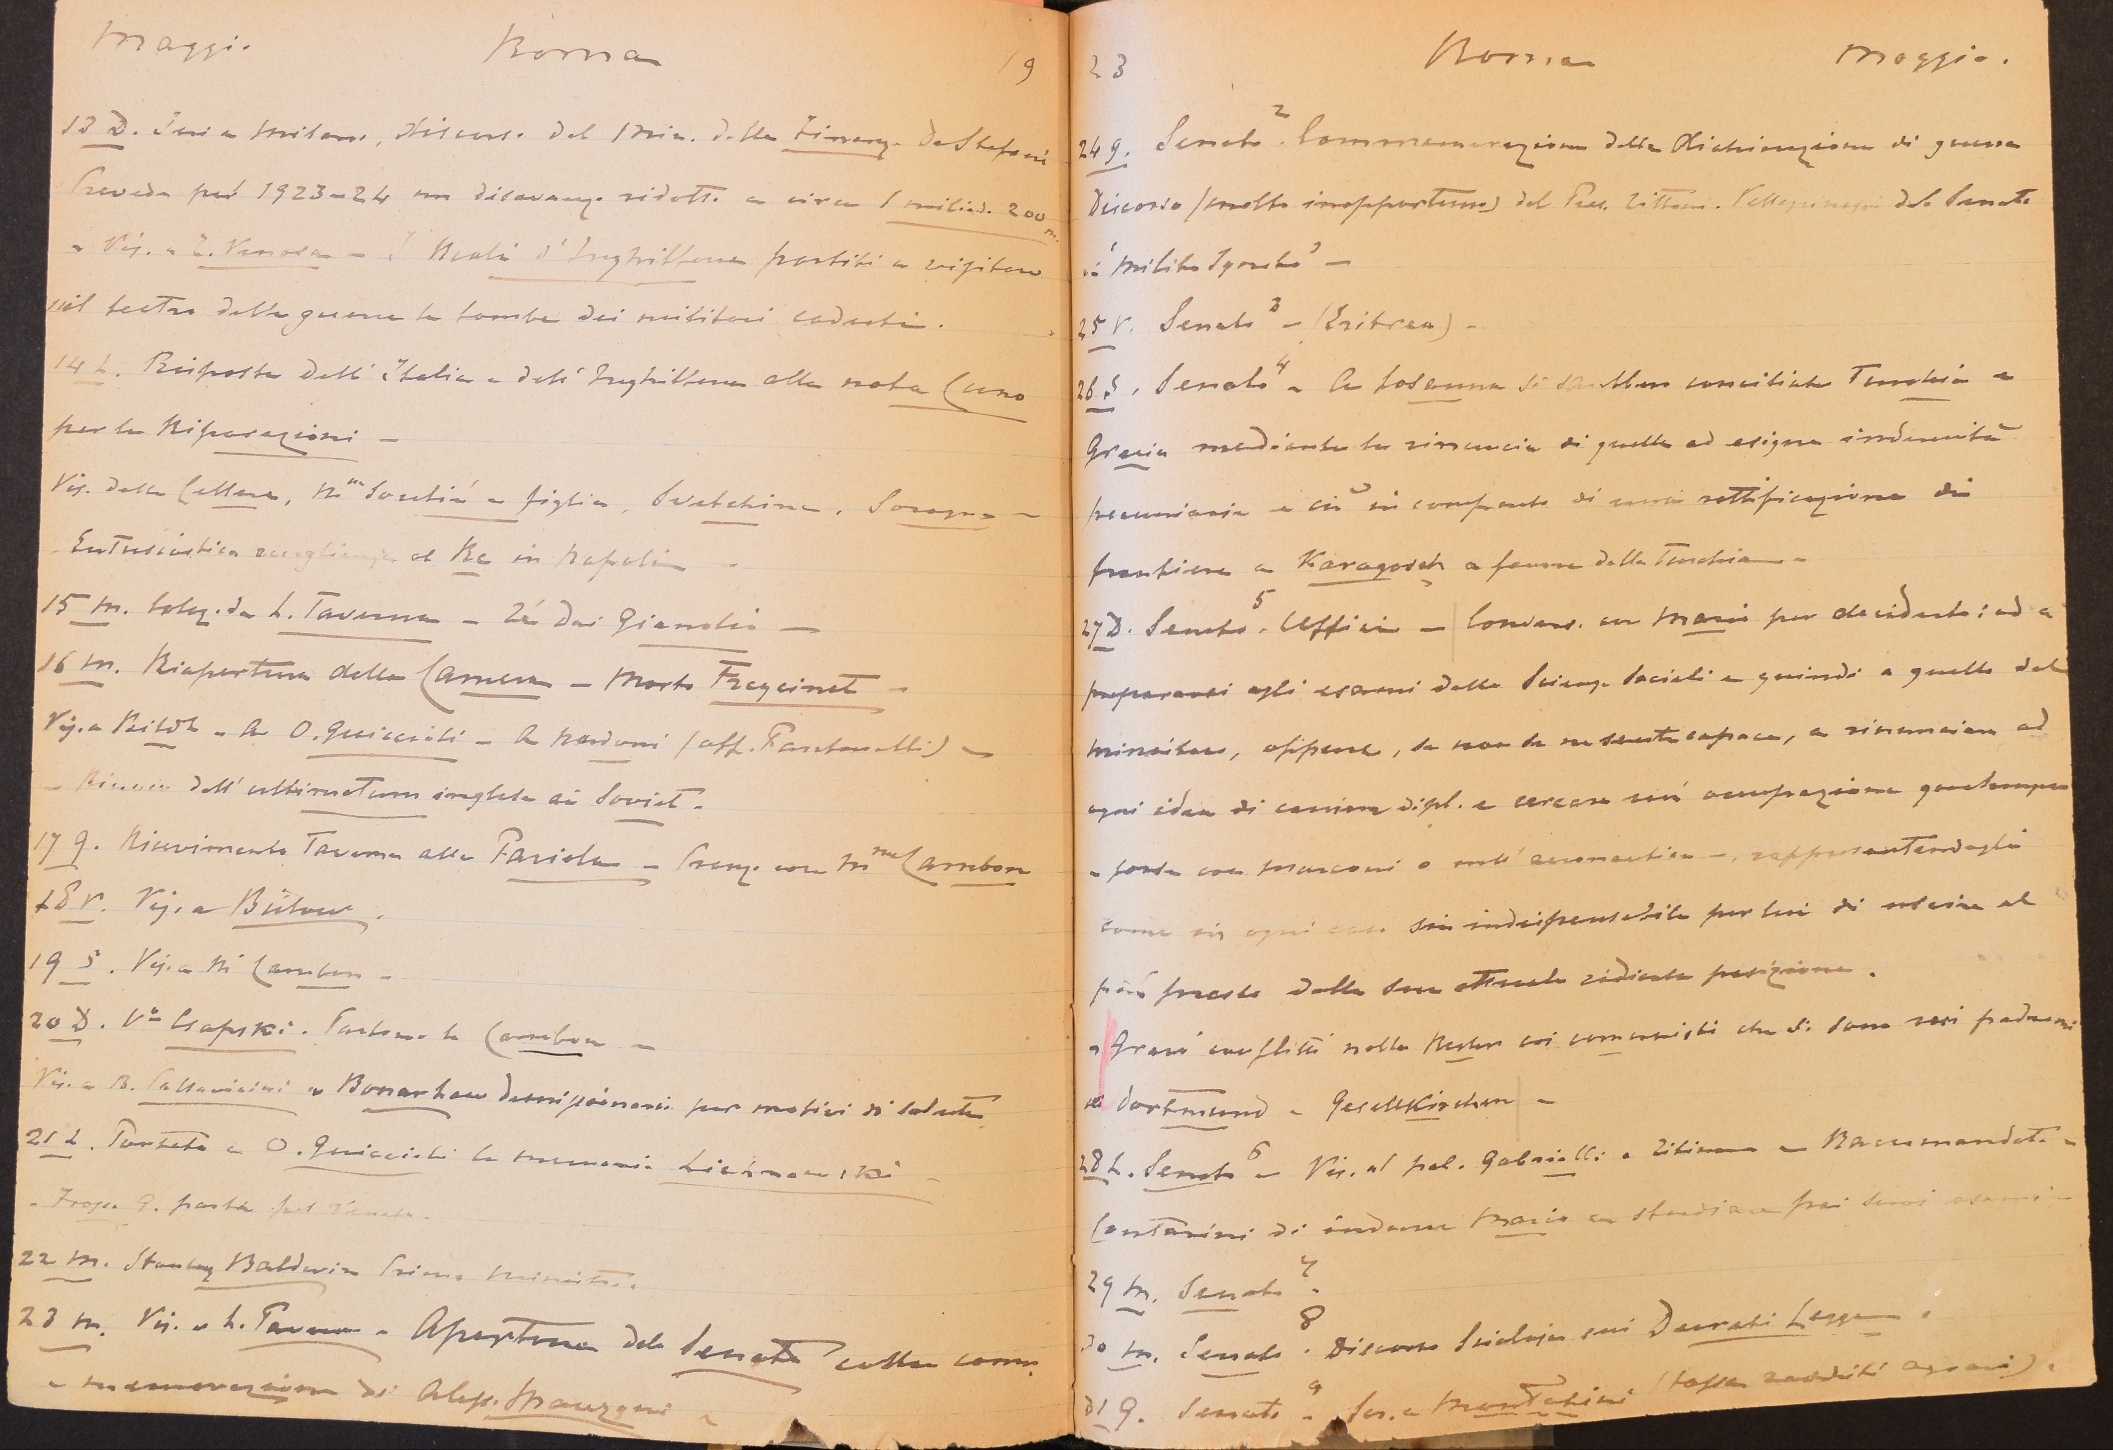 Maggio. Roma 19
13 D. Ieri a Milano, discorso del Min. delle Finanze De Stefani
Prevede pel 1923-24 un disavanzo ridotto a circa 1 miliard. 200 m.
- Vis. a T. Venosa - I Reali d'Inghilterra partiti a visitare
nel teatro della guerra le tombe dei militari caduti.
14 L. Risposta dell'Italia e dell'Inghilterra alla nota Cuno
per le Riparazioni -
Vis. della e figlia,
Entusiastica accoglienza al Re in Napoli -
15 M. Colaz. da L. Taverna - Tè dai
16 M. Riapertura della Camera - Morto Freycinet -
Vis. a Bildt - a O. Guiccioli - a Nardoni (aff.
- dell'ultimatum inglese ai Soviet.
17 G. Ricevimento Taverna alla Fariola - Pranz. con Mme Cambon
18 V. Vis. a Bülow.
19 S. Vis. a M. Cambon -
20 D. Va Czapski. Partono le Cambon -
Vis. a B. Pallavicini - Bonar Law dimissionario per motivi di salute
21 L. Portato a O. Guiccioli la memoria
22 M. Stanley Baldwin Primo Ministro.
23 M. Vis. a L. Taverna - Apertura del Senato colla com-
- memorazione di Aless. Manzoni -
23 Roma Maggio.
24 G. Senato 2. Commemorazione della Dichiarazione di guerra
Discorso (molto inopportuno) del Pres. Tittoni. Pellegrinaggio del Senato
al Milite Ignoto 3 -
25 V. Senato 3 - (Eritrea) -
26 S. Senato 4 - A Losanna si sarebbero conciliate Turchia e
Grecia mediante la rinuncia di quella ad esigere indennità
pecuniaria e ciò in compenso di una rettificazione di
frontiera a Karagosch a favore della Turchia -
27 D. Senato 5. Uffici - Convers. con Mario per deciderlo: od a
prepararsi agli esami delle Scienze Sociali e quindi a quello del
ministero, oppure, se non se ne sente capace, a rinunciare ad
ogni idea di carriera dipl. e cercare un'occupazione qualunque
- forse con Marconi o nell'aeronautica -, rappresentandogli
come in ogni caso sia indispensabile per lui di uscire al
più presto dalla sua attuale ridicola posizione.
- Gravi conflitti nella Ruhr coi comunisti che si sono resi padroni
di Dortmund e Geselkirchen -
28 L. Senato 6 - Vis. al pal. Gabrielli - - Raccomandato a
Contarini di indurre Mario a studiare pei suoi esami -
29 M. Senato 7.
30 M. Senato 8. Discorso Scialoja sui Decreti Legge.
31 G. Senato 9 - (tassa redditi agrari).